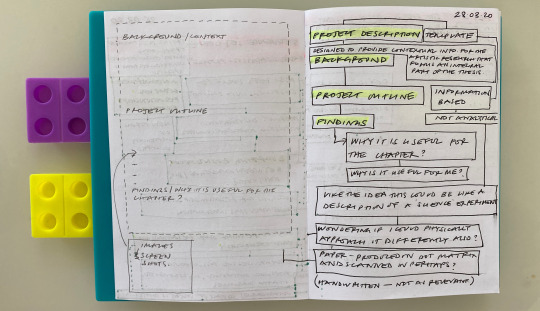 BACKGROUND / CONTEXT
PROJECT OUTLINE
FINDINGS / WHY IT IS USEFUL FOR THE
CHAPTER?
IMAGES
&
SCREEN
SHOTS.
28.08.20
PROJECT DESCRIPTION TEMPLATE
DESIGNED TO PROVIDE CONTEXTUAL INFO FOR THE
ARTISTIC RESEARCH THAT
FORMS AN INTEGRAL
PART OF THE THESIS
BACKGROUND
PROJECT OUTLINE
INFORMATION
BASED
NOT ANALYTICAL
FINDINGS
WHY IT IS USEFUL FOR
THE CHAPTER?
WHY IS IT USEFUL FOR ME?
LIKE THE IDEA THIS COULD BE LIKE A
DESCRIPTION OF A SCIENCE EXPERIMENT
WONDERING IF I COULD PHYSICALLY
APPROACH IT DIFFERENTLY ALSO?
PAPER - PRODUCED IN DOT MATRIX
AND SCANNED IN PERHAPS?
(HANDWRITTEN - NOT AS RELEVANT)